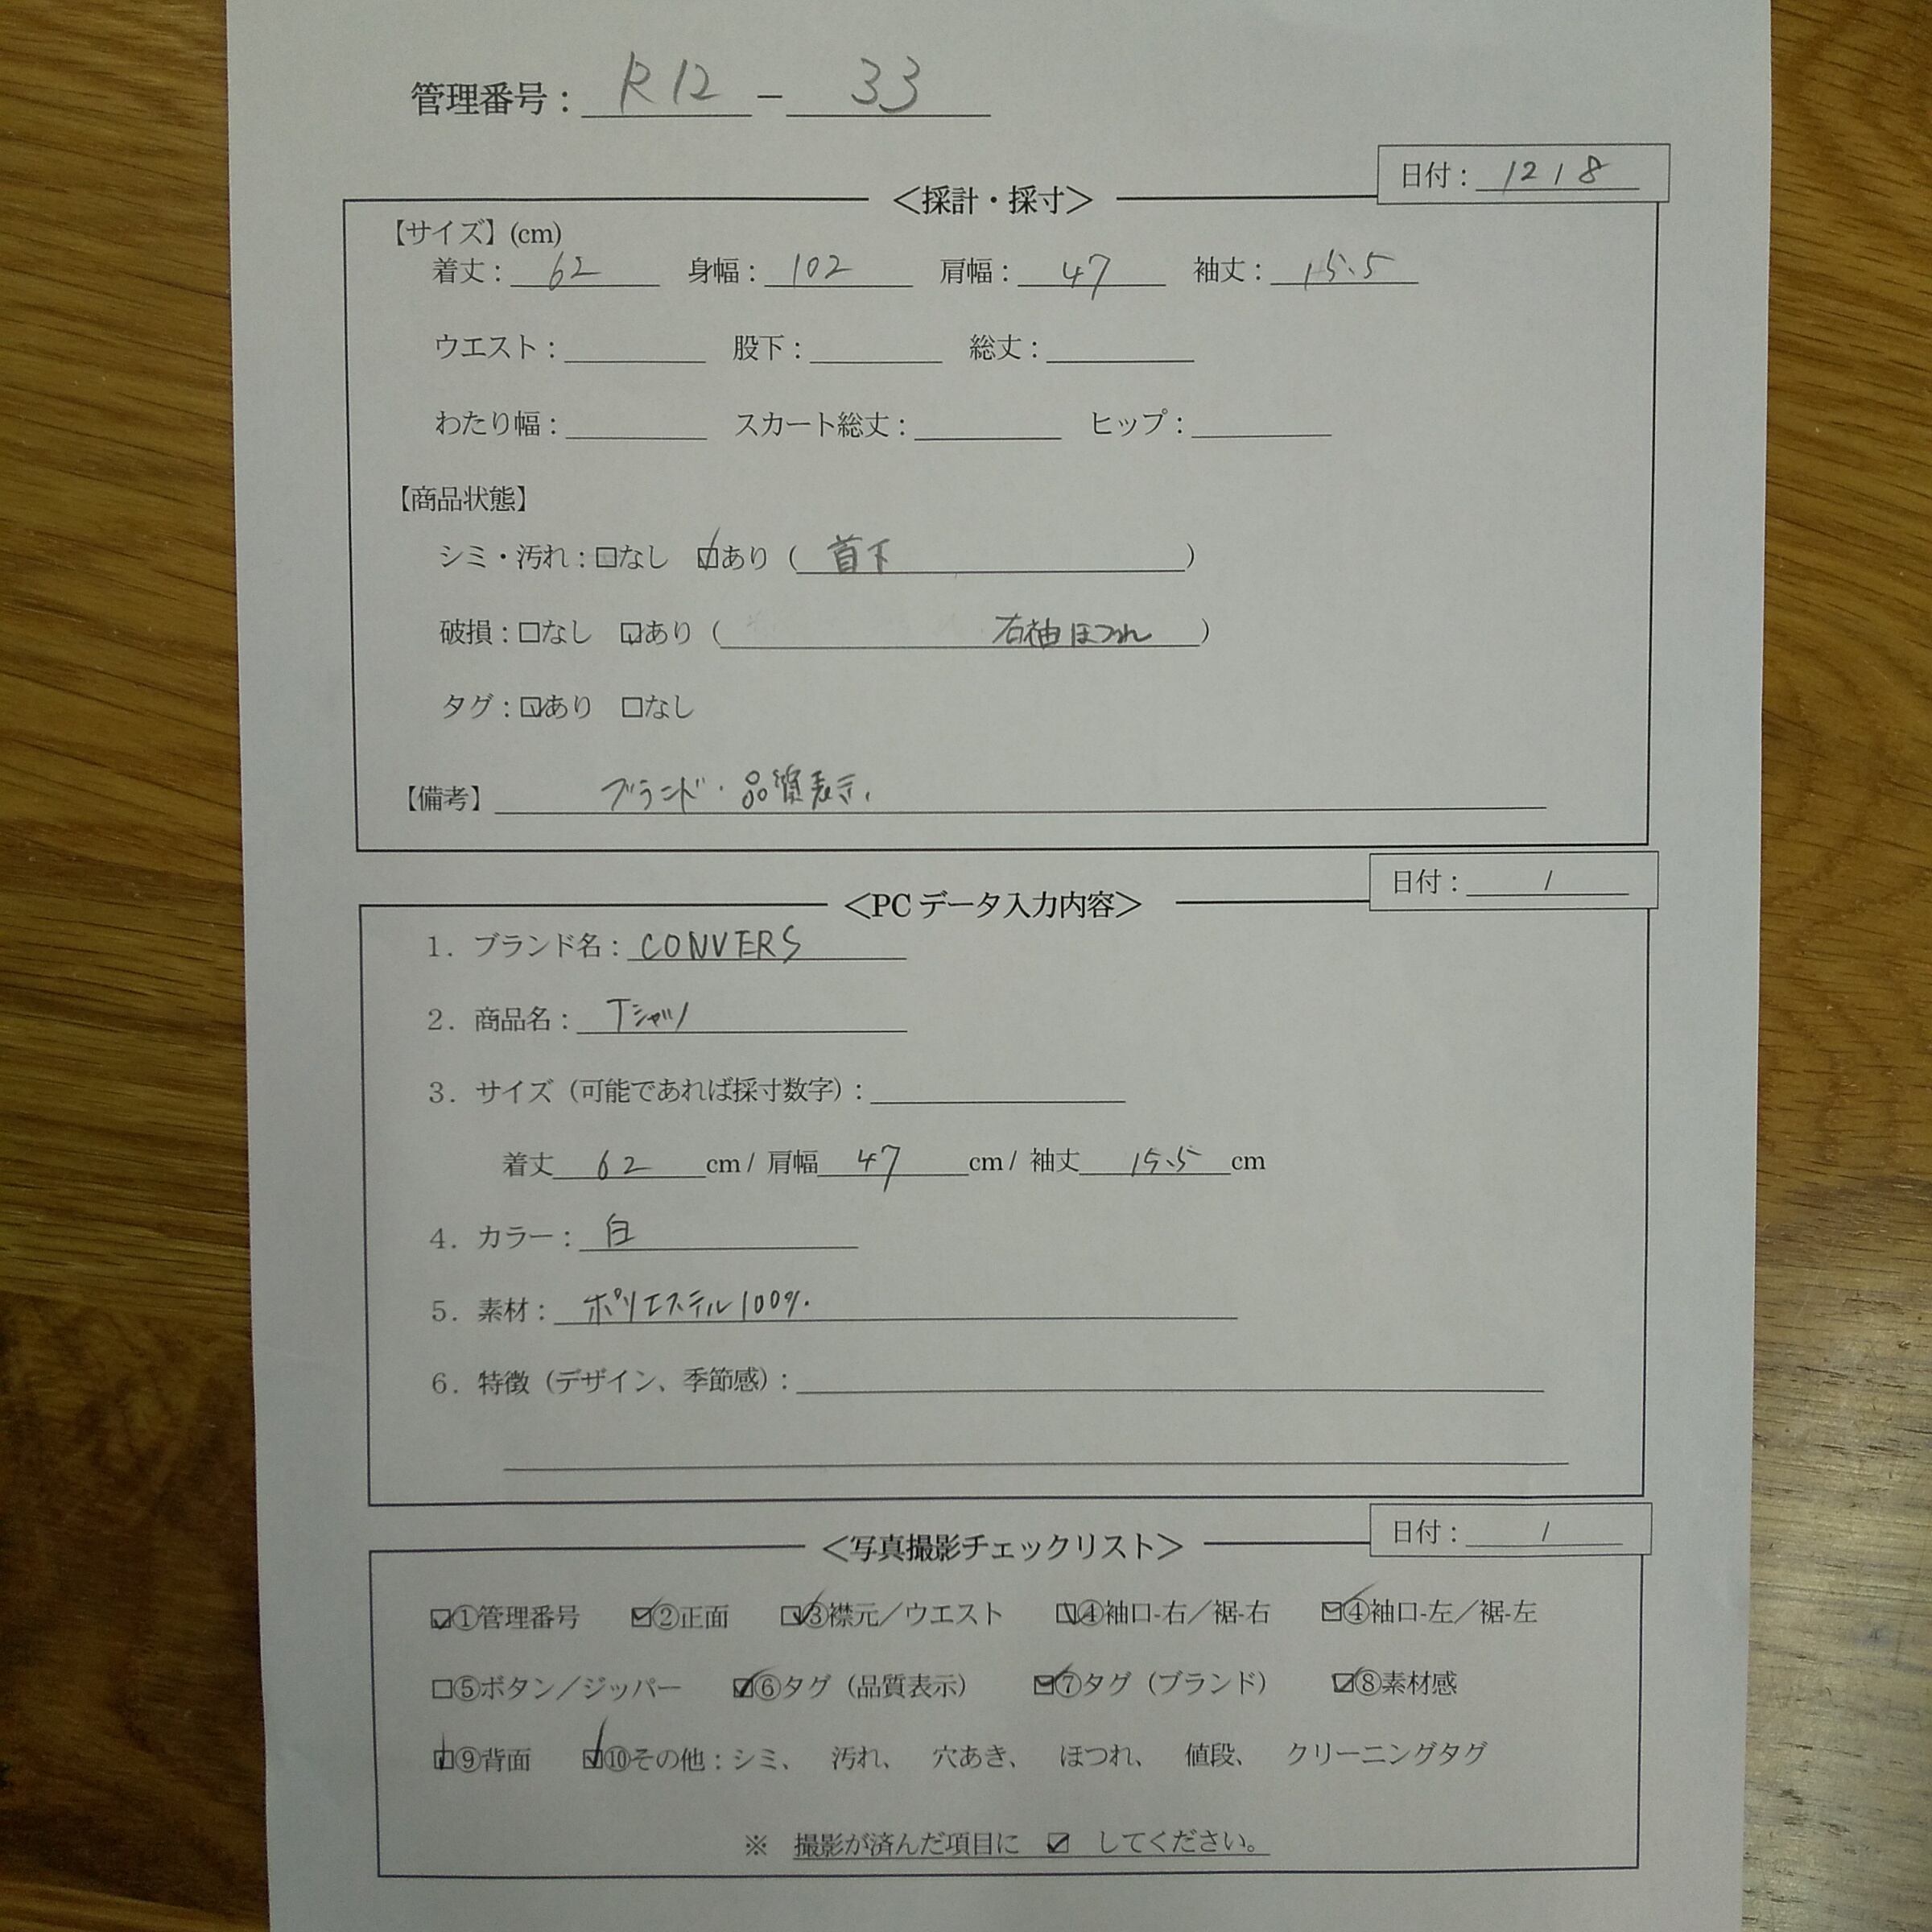 管理番号：R12 － 33
日付：12/8
＜採計・採寸＞
【サイズ】(cm)
着丈：62 身幅：102 肩幅：47 袖丈：15.5
ウエスト： 股下： 総丈：
わたり幅： スカート総丈： ヒップ：
【商品状態】
シミ・汚れ：□なし ☑あり（首下）
破損：□なし ☑あり（右袖ほつれ）
タグ：☑あり □なし
【備考】ブランド・品質表示、
日付： /
＜PCデータ入力内容＞
1．ブランド名：CONVERS
2．商品名：Tシャツ
3．サイズ（可能であれば採寸数字）：
着丈 62 cm / 肩幅 47 cm / 袖丈 15.5 cm
4．カラー：白
5．素材：ポリエステル100%
6．特徴（デザイン、季節感）：
日付： /
＜写真撮影チェックリスト＞
☑①管理番号 ☑②正面 ☑③襟元／ウエスト ☑④袖口-右／裾-右 ☑④袖口-左／裾-左
□⑤ボタン／ジッパー ☑⑥タグ（品質表示） ☑⑦タグ（ブランド） ☑⑧素材感
☑⑨背面 ☑⑩その他：シミ、 汚れ、 穴あき、 ほつれ、 値段、 クリーニングタグ
※ 撮影が済んだ項目に ☑ してください。